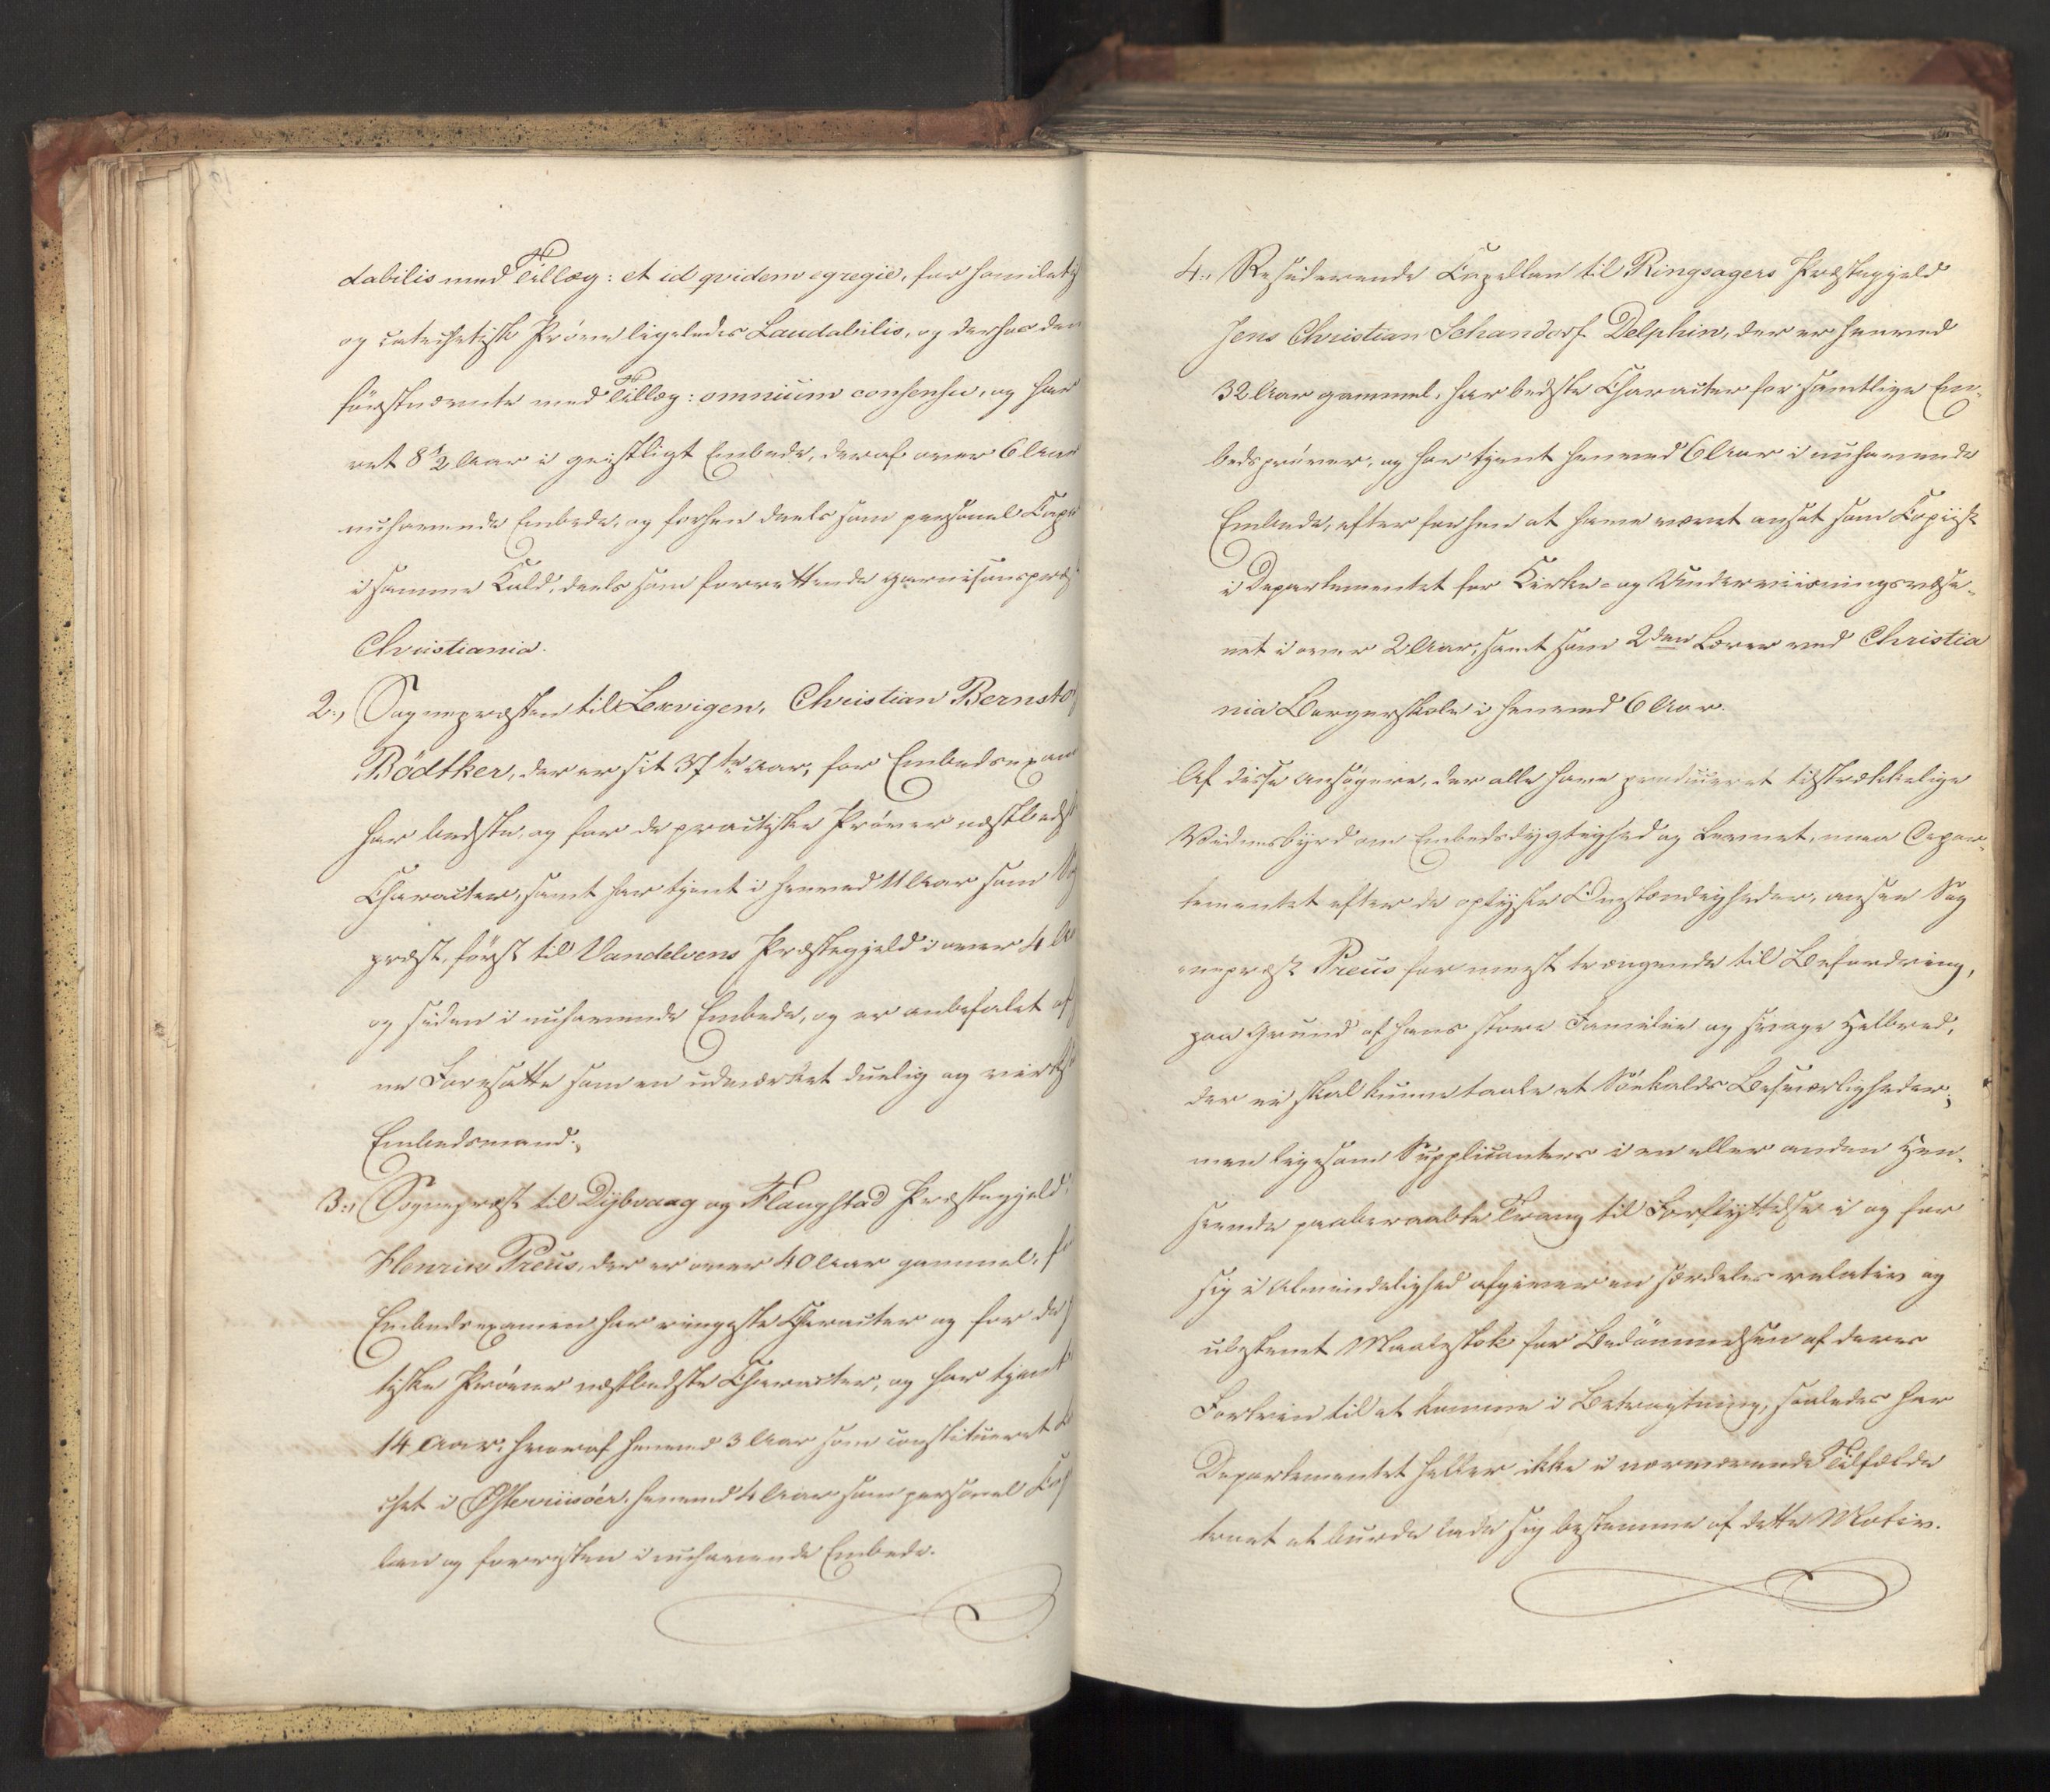 dabilis med Tillæg: et id qvidem egregie, for homiletisk
og catechetisk Prøve ligeledes Laudabilis, og derhos den
førstnævnte med Tillæg: omnium consensu, og har
vet 8 1/2 Aar i geistligt Embede, deraf over 6 Aar
nuhavende Embede, og forhen deels som personel Cape
i samme Kald, deels som forrettende Garnisonspræst
Christiania.
2., Sognepræsten til Lervigen, Christian Bernsto
Bödtker, der er i sit 37te Aar, for Embedsexam
har bedste, og for de practiske Prøver næstbedste
Character, samt har tjent i henved 11 Aar som Sog
præst, først til Vandelvens Præstegjeld i over 4 Aa
og siden i nuhavende Embede, og er anbefalet af
ne Foresatte som en udmærket duelig og virks
Embedsmand.,
3., Sognepræst til Dybvaag og Flaugstad Præstegjeld,
Henrik Preus, der er over 40 Aar gammel, for
Embedsexamen har ringeste Character og for de
tiske Prøver næstbedste Character, og har tjent
14 Aar, hvoraf henved 3 Aar som constitueret
i Østeriisöer, henved 4 Aar som personel Cap
lan og forresten i nuhavende Embede.
4., Residerende Capellan til Ringsagers Præstegjeld
Jens Christian Schandorf Delphin, der er henved
32 Aar gammel, har bedste Character for samtlige Em-
bedsprøver, og har tjent henved 6 Aar i nuhavende
Embede, efter forhen at have været ansat som Copiist
i Departementet for Kirke- og Underviisningsvæse-
net i over 2 Aar, samt som 2den Lærer ved Christia
nia Borgerskole i henved 6 Aar.
Af disse Ansøgere, der alle have produceret tilstrækkelige
Vidnesbyrd om Embedsdygtighed og Levnet, maa Depar-
tementet efter de oplyste Omstændigheder, ansee Sog
nepræst Preus for meest trængende til Befordring,
paa Grund af hans store Familie og svage Helbred,
der ei skal kunne taale et Søekalds Besværligheder;
men ligesom Supplicanters i en eller anden Hen-
seende paaberaabte Trang til Forflyttelse i og for
sig i Almindelighed afgiver en særdeles relativ og
ubestemt Maalestok for Bedømmelsen af deres
Fortrin til at komme i Betragtning, saaledes har
Departementet heller ikke i nærværende Tilfælde
troet at burde lade sig bestemme af dette Motiv.